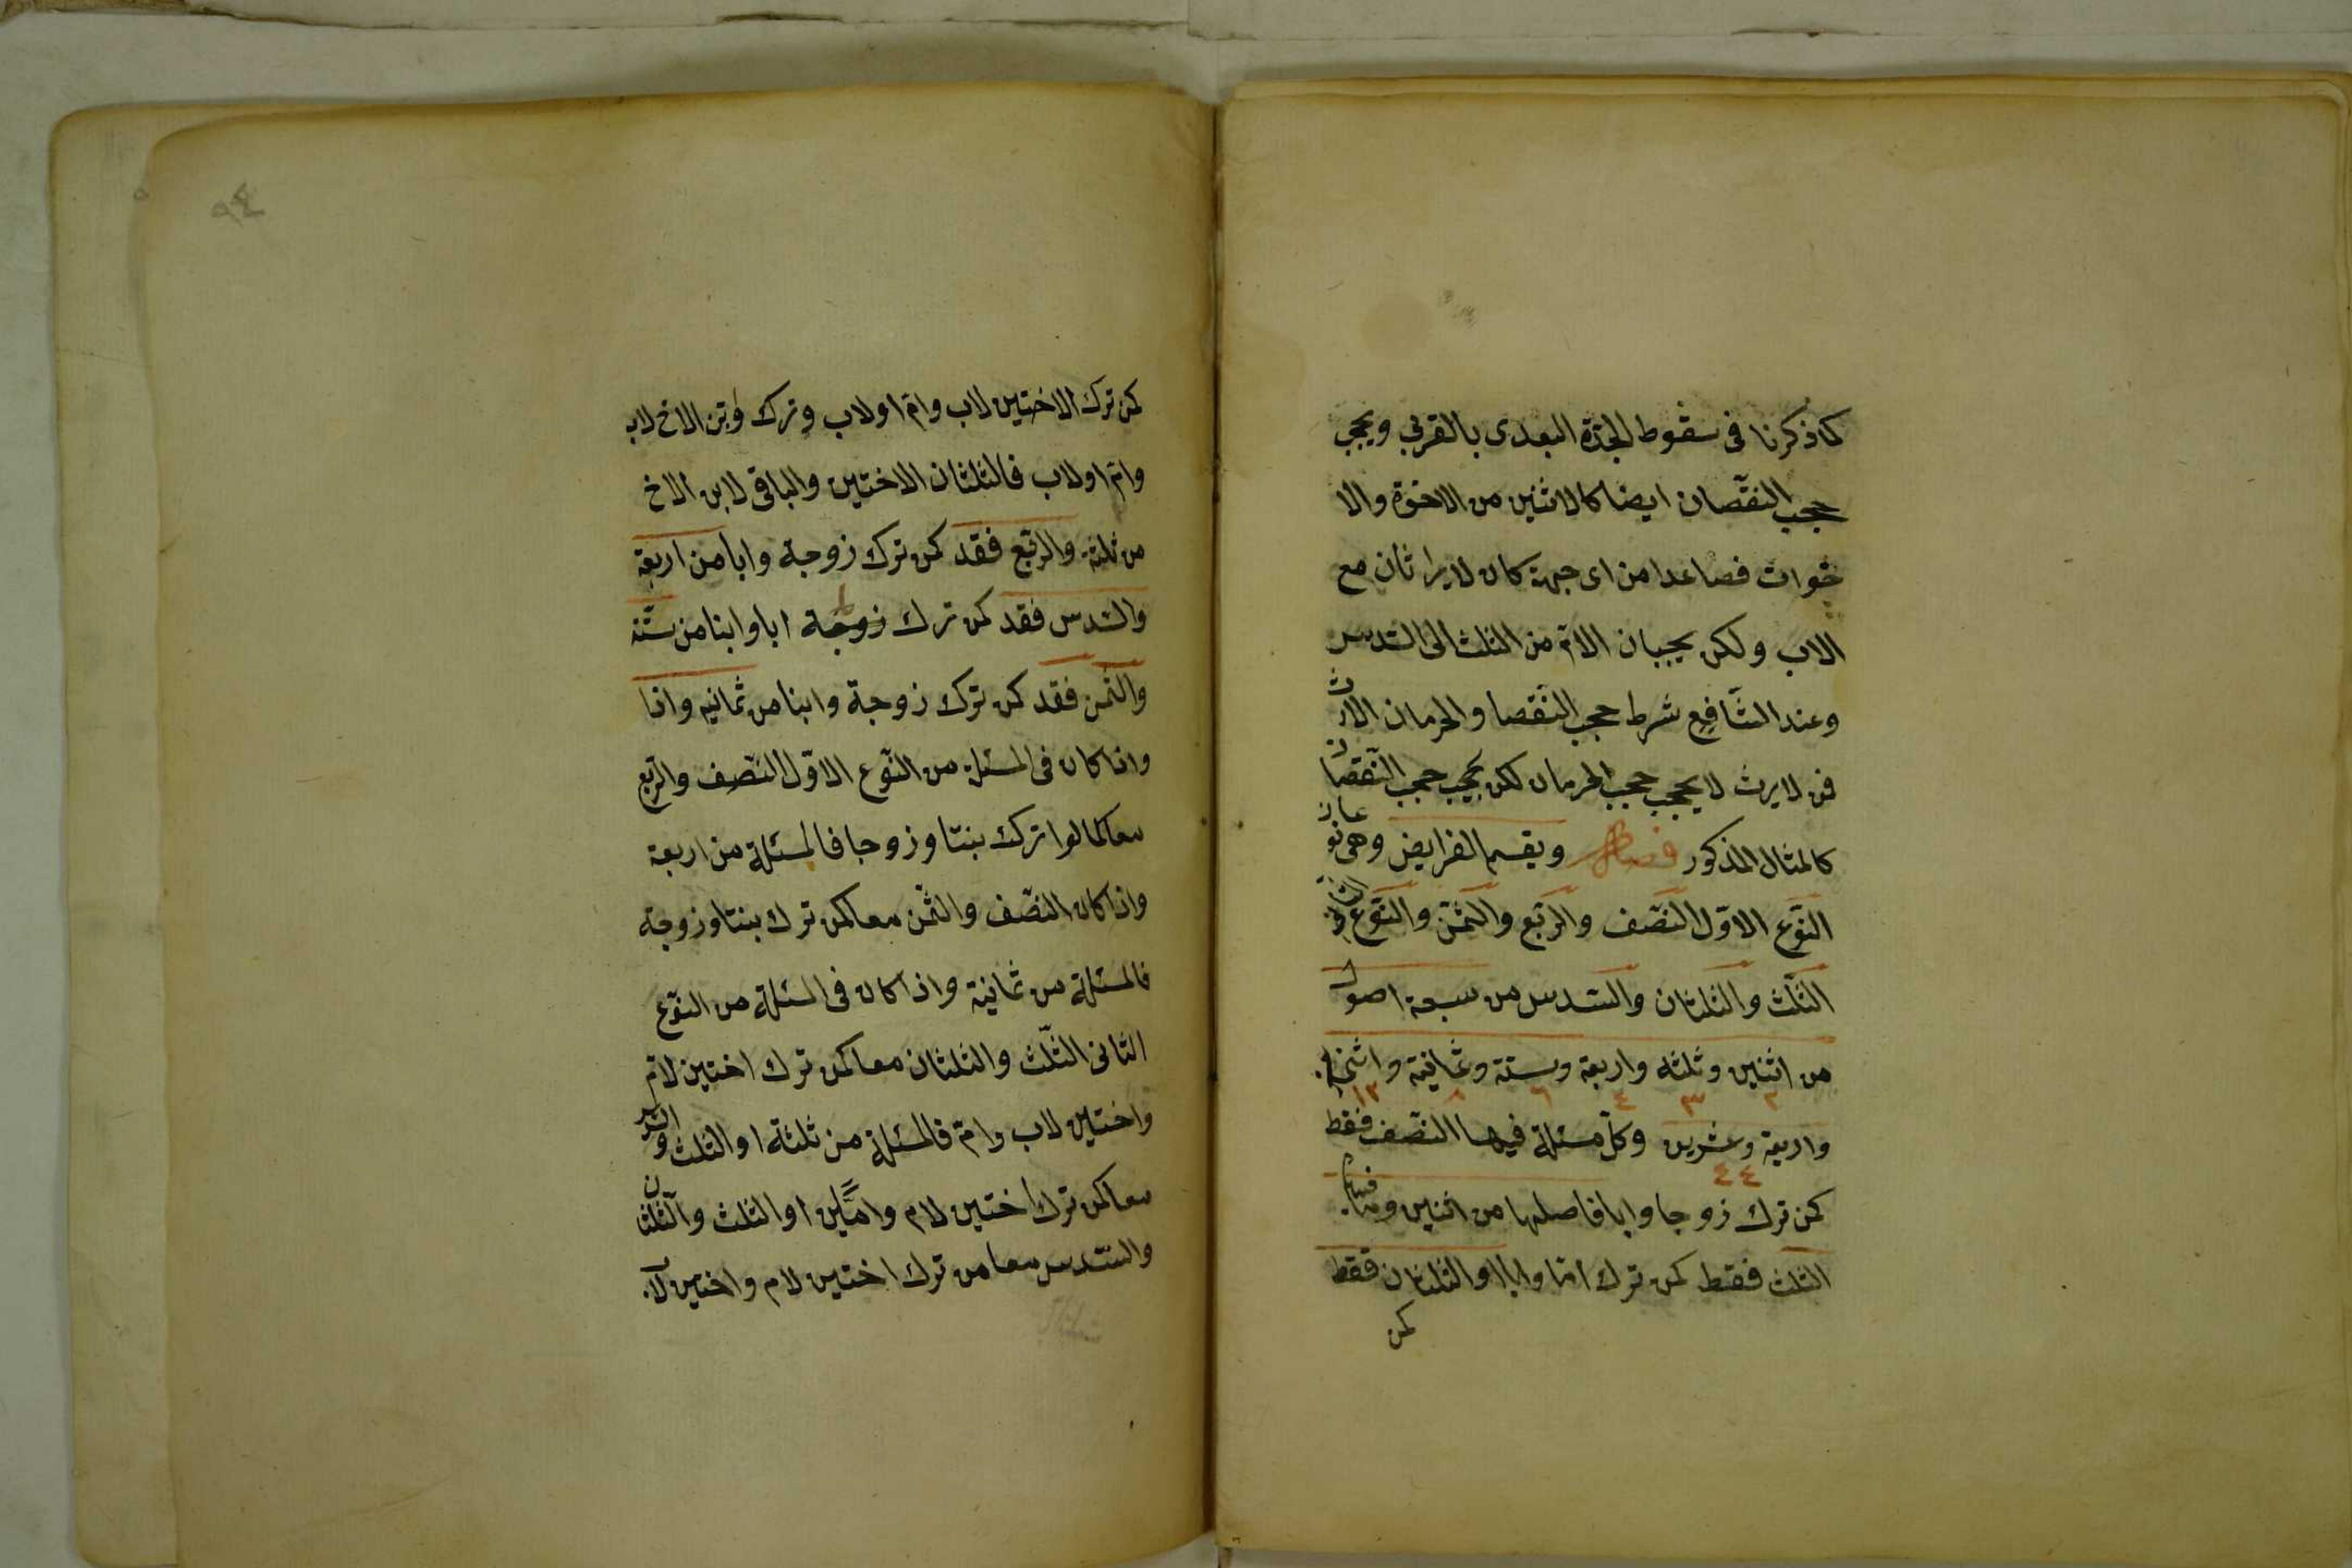 كما ذكرنا فى سقوط الجدة البعدى بالقربي ويحجب
حجب النقصان ايضا كالاثنين من الاخوة والا
خوات فصاعدا من اى جهة كان لا يراثان مع
الاب ولكن يحجبان الام من الثلث الى السدس
وعند الشافع شرط حجب النقصا والحرمان الارث
فمن لا يرث لا يحجب حجب الحرمان لكن يحجب حجب النقصان
كالمثال المذكور فصل ويقسم الفرايض وهى نوعان
النوع الاول النصف والربع والثمن والنوع الثانى
الثلث والثلثان والسدس من سبعة اصول
من اثنين وثلثه واربعة وستة وثمانية واثنى
٢ ٣ ٤ ٦ ٨ ١٢
واربعة وعشرين وكل مسئلة فيها النصف فقط
٤٤
كمن ترك زوجا وابا فاصلها من اثنين
الثلث فقط كمن ترك اما وابا او الثلثان فقط
كمن
٩٤
كمن ترك الاختين لاب وام او لاب وترك وبن الاخ لاب
وام او لاب فالثلثان الاختين والباقى لابن الاخ
من ثلثة والربع فقد كمن ترك زوجة وابا من اربعة
والسدس فقد كمن ترك زوجة ابا وابنا من ستة
والثمن فقد كمن ترك زوجة وابنا من ثمانيه واذا
واذا كان فى المسئلة من النوع الاول النصف والربع
معا كما لوا ترك بنتا وزوجا فالمسئلة من اربعة
واذا كان النصف والثمن معا كمن ترك بنتا وزوجة
فالمسئلة من ثمانية واذا كان فى السئلة من النوع
الثانى الثلث والثلثان معا كمن ترك اختين لام
واختين لاب وام فالمسئلة من ثلثة او الثلث والسدس
معا كمن ترك اختين لام واما او الثلث والثلثان
والسدس معا من ترك اختين لام واختين لاب